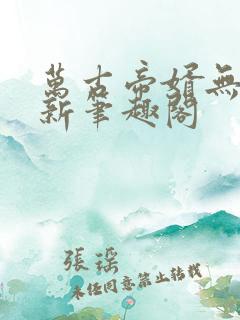 萬古帝婿無
新筆趣閣
張瑤
未經同意禁止轉載